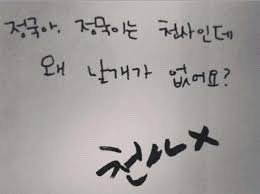 정국아, 정국이는 천사인데
왜 날개가 없어요?
천사 X